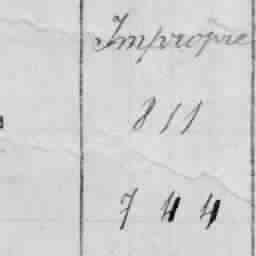 Impropre
811
744